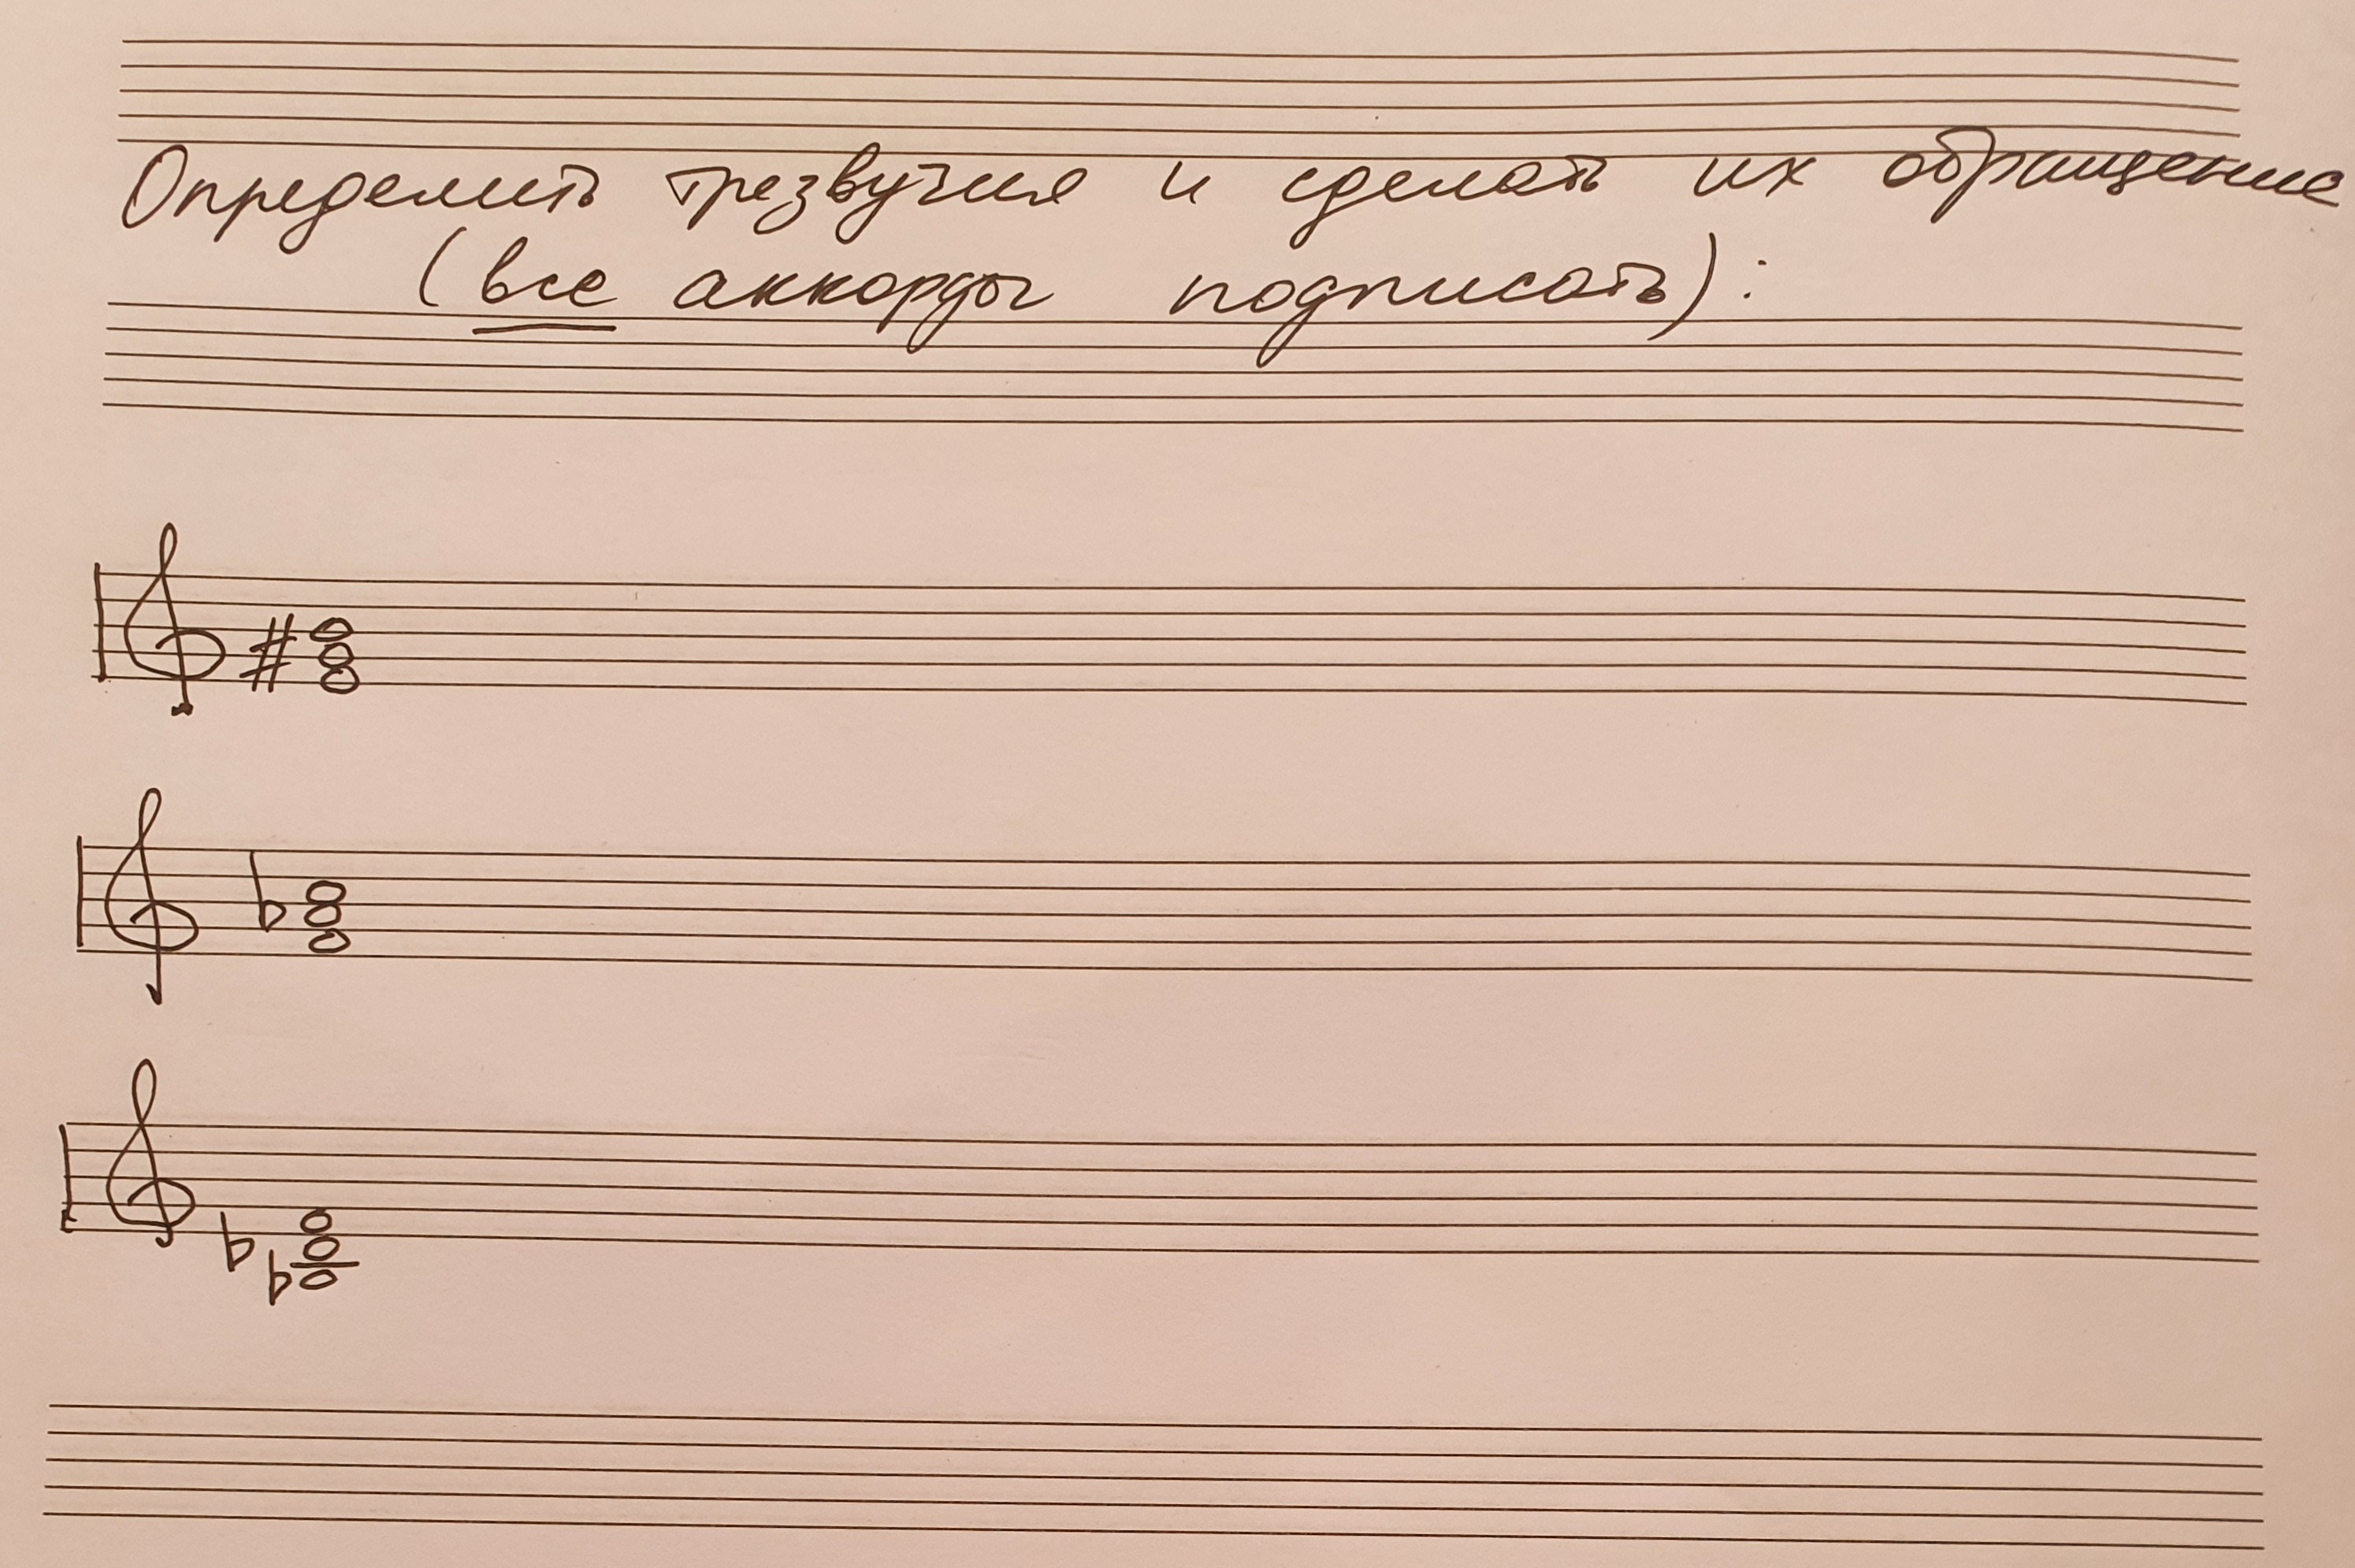 Определить трезвучия и сделать их обращение
(все аккорды подписать):